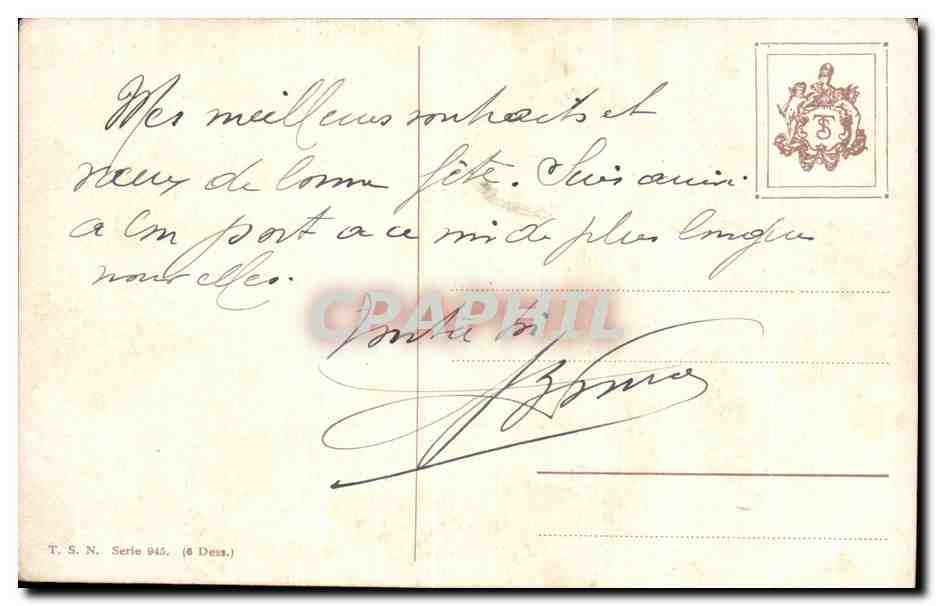 Mes meilleurs souhaits et
vœux de bonne fête. Suis arrivé
a bon port a ce midi plus longues
nouvelles.
CPARPHIL
T. S. N. Serie 945. (6 Dess.)